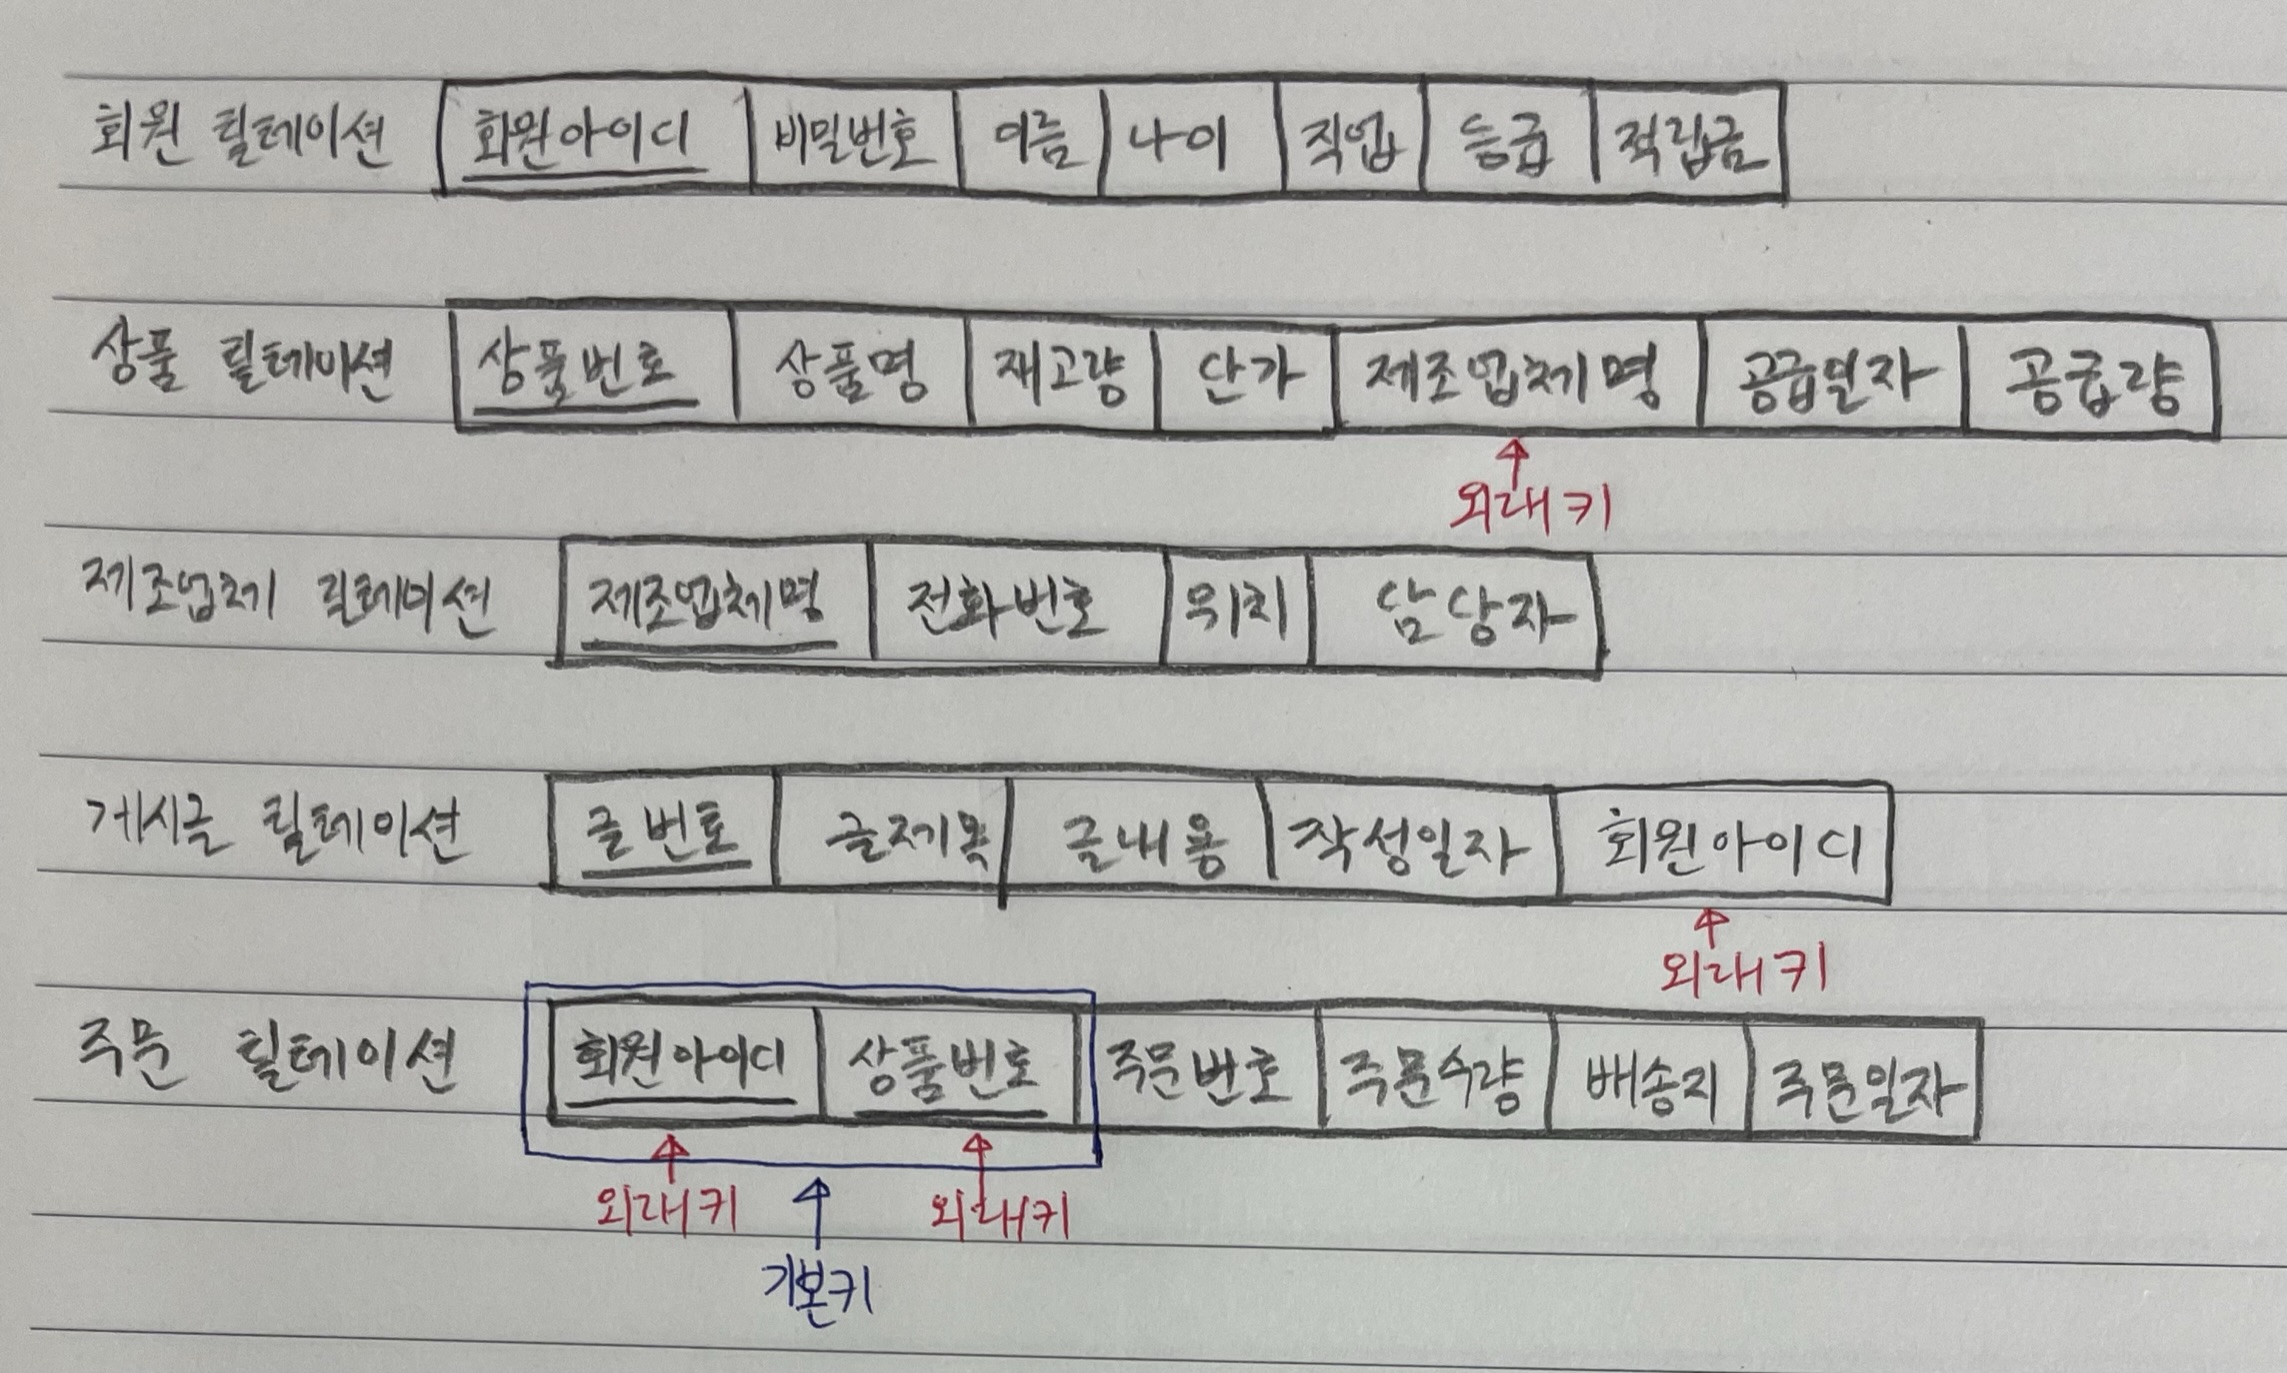 회원 릴레이션 회원아이디 비밀번호 이름 나이 직업 등급 적립금
상품 릴레이션 상품번호 상품명 재고량 단가 제조업체명 공급일자 공급량
외래키
제조업체 릴레이션 제조업체명 전화번호 위치 담당자
게시글 릴레이션 글번호 글제목 글내용 작성일자 회원아이디
외래키
주문 릴레이션 회원아이디 상품번호 주문번호 주문수량 배송지 주문일자
외래키 외래키
기본키